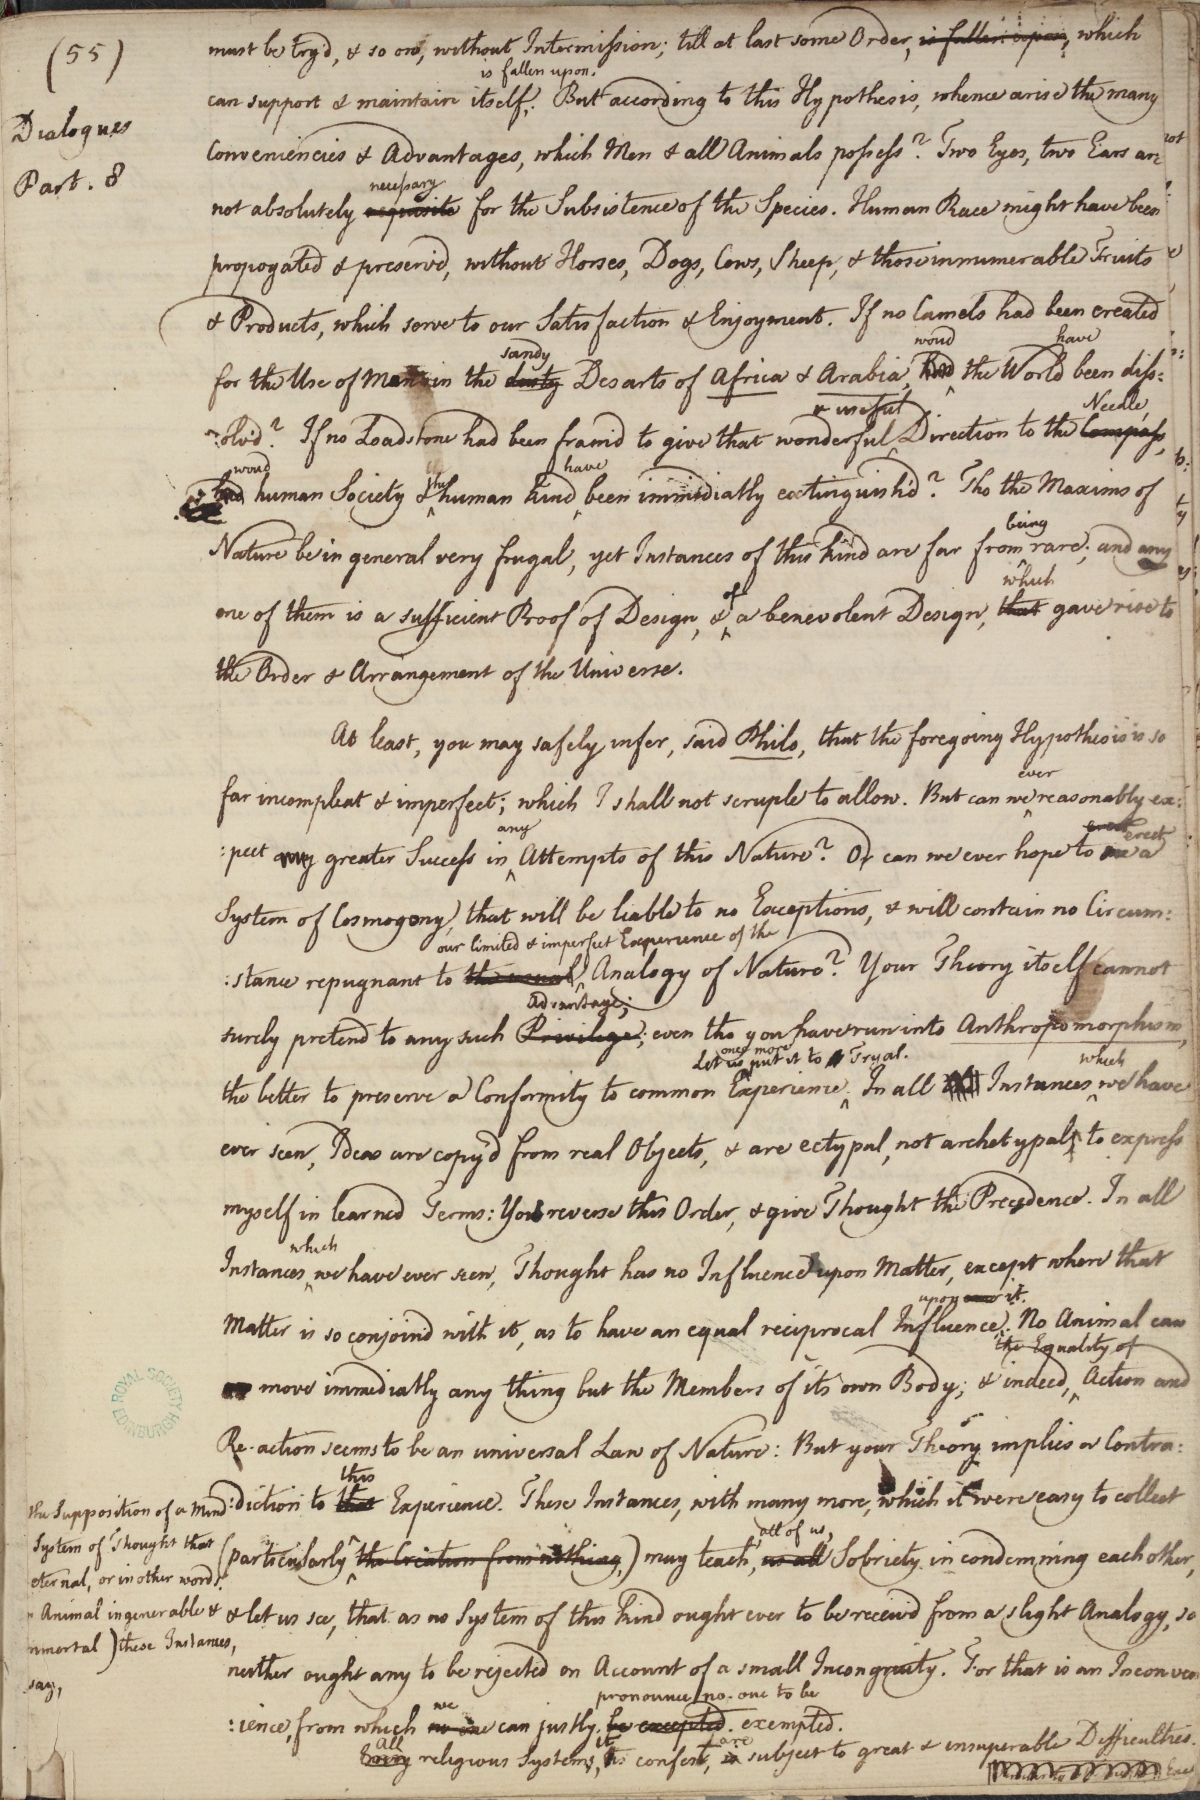 (55)
Dialogues
Part. 8
must be try'd, & so on, without Intermission; till at last some Order, is fallen upon, which
is fallen upon.
can support & maintain itself. But according to this Hypothesis, whence arise the many
Conveniencies & Advantages, which Men & all Animals possess? Two Eyes, two Ears are
necessary
not absolutely requisite for the Subsistence of the Species. Human Race might have been
propogated & preserv'd, without Horses, Dogs, Cows, Sheep, & those innumerable Fruits
& Products, which serve to our Satisfaction & Enjoyment. If no Camels had been created
sandy woud have
for the Use of Man in the dusty Desarts of Africa & Arabia, had the World been diss:
& useful Needle,
:olv'd? If no Loadstone had been fram'd to give that wonderful Direction to the Compass,
woud the have
had human Society & human kind been immediatly extinguish'd? Tho the Maxims of
being
Nature be in general very frugal, yet Instances of this kind are far from rare; and any
of which
one of them is a sufficient Proof of Design, & a benevolent Design, that gave rise to
the Order & Arrangement of the Universe.
At least, you may safely infer, said Philo, that the foregoing Hypothesis is so
ever
far incompleat & imperfect; which I shall not scruple to allow. But can we reasonably ex:
any erect erect
:pect any greater Success in Attempts of this Nature? Or can we ever hope to a
System of Cosmogony, that will be liable to no Exceptions, & will contain no Circum:
our limited & imperfect Experience of the
:stance repugnant to the usual Analogy of Nature? Your Theory itself cannot
Advantage;
surely pretend to any such Privilege; even tho you have run into Anthropomorphism,
Let us once more put it to Tryal. which
the better to preserve a Conformity to common Experience. In all Instances we have
ever seen, Ideas are copy'd from real Objects, & are ectypal, not archetypal, to express
myself in learned Terms: You reverse this Order, & give Thought the Precedence. In all
which
Instances we have ever seen, Thought has no Influence upon Matter, except where that
upon it.
Matter is so conjoin'd with it, as to have an equal reciprocal Influence. No Animal can
the Equality of
move immediatly any thing but the Members of its own Body; & indeed, Action and
Re-action seems to be an universal Law of Nature: But your Theory implies a Contra:
this
:diction to that Experience. These Instances, with many more, which it were easy to collect
all of us,
(particularly the Creation from nothing,) may teach, us all Sobriety in condemning each other,
& let us see, that as no System of this kind ought ever to be receiv'd from a slight Analogy, so
neither ought any to be rejected on Account of a small Incongruity. For that is an Inconven
we pronounce no-one to be
:ience, from which no one can justly be excepted. exempted.
All it are
religious Systems, tis confest, is subject to great & insuperable Difficulties.
the Supposition of a Mind
System of Thought that
eternal, or in other words,
Animal ingenerable &
mmortal) these Instances,
say,
ROYAL SOCIETY EDINBURGH